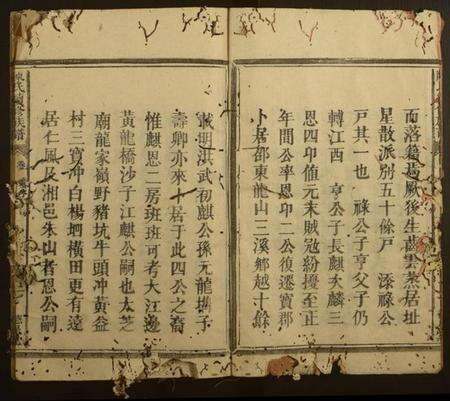 而落籍焉厥後生齒雲蒸居址
星散派別五十餘戶 添祿公
戶其一也 祿公子亨父子仍
轉江西 亨公子長麒次麟三
恩四印值元末賊寇紛擾至正
年間公率恩印二公復遷寶郡
卜居邵東龍山三溪鄉越十餘
載明洪武初麒公孫元龍攜子
壽卿亦來卜居于此四公之裔
惟麒恩二房班班可考大江邊
黃龍橋沙子江麒公嗣也太芝
廟龍家嶺野豬坑牛頭冲黃益
村三寶冲白楊垇橫田更有遠
居仁風及湘邑朱山者恩公嗣